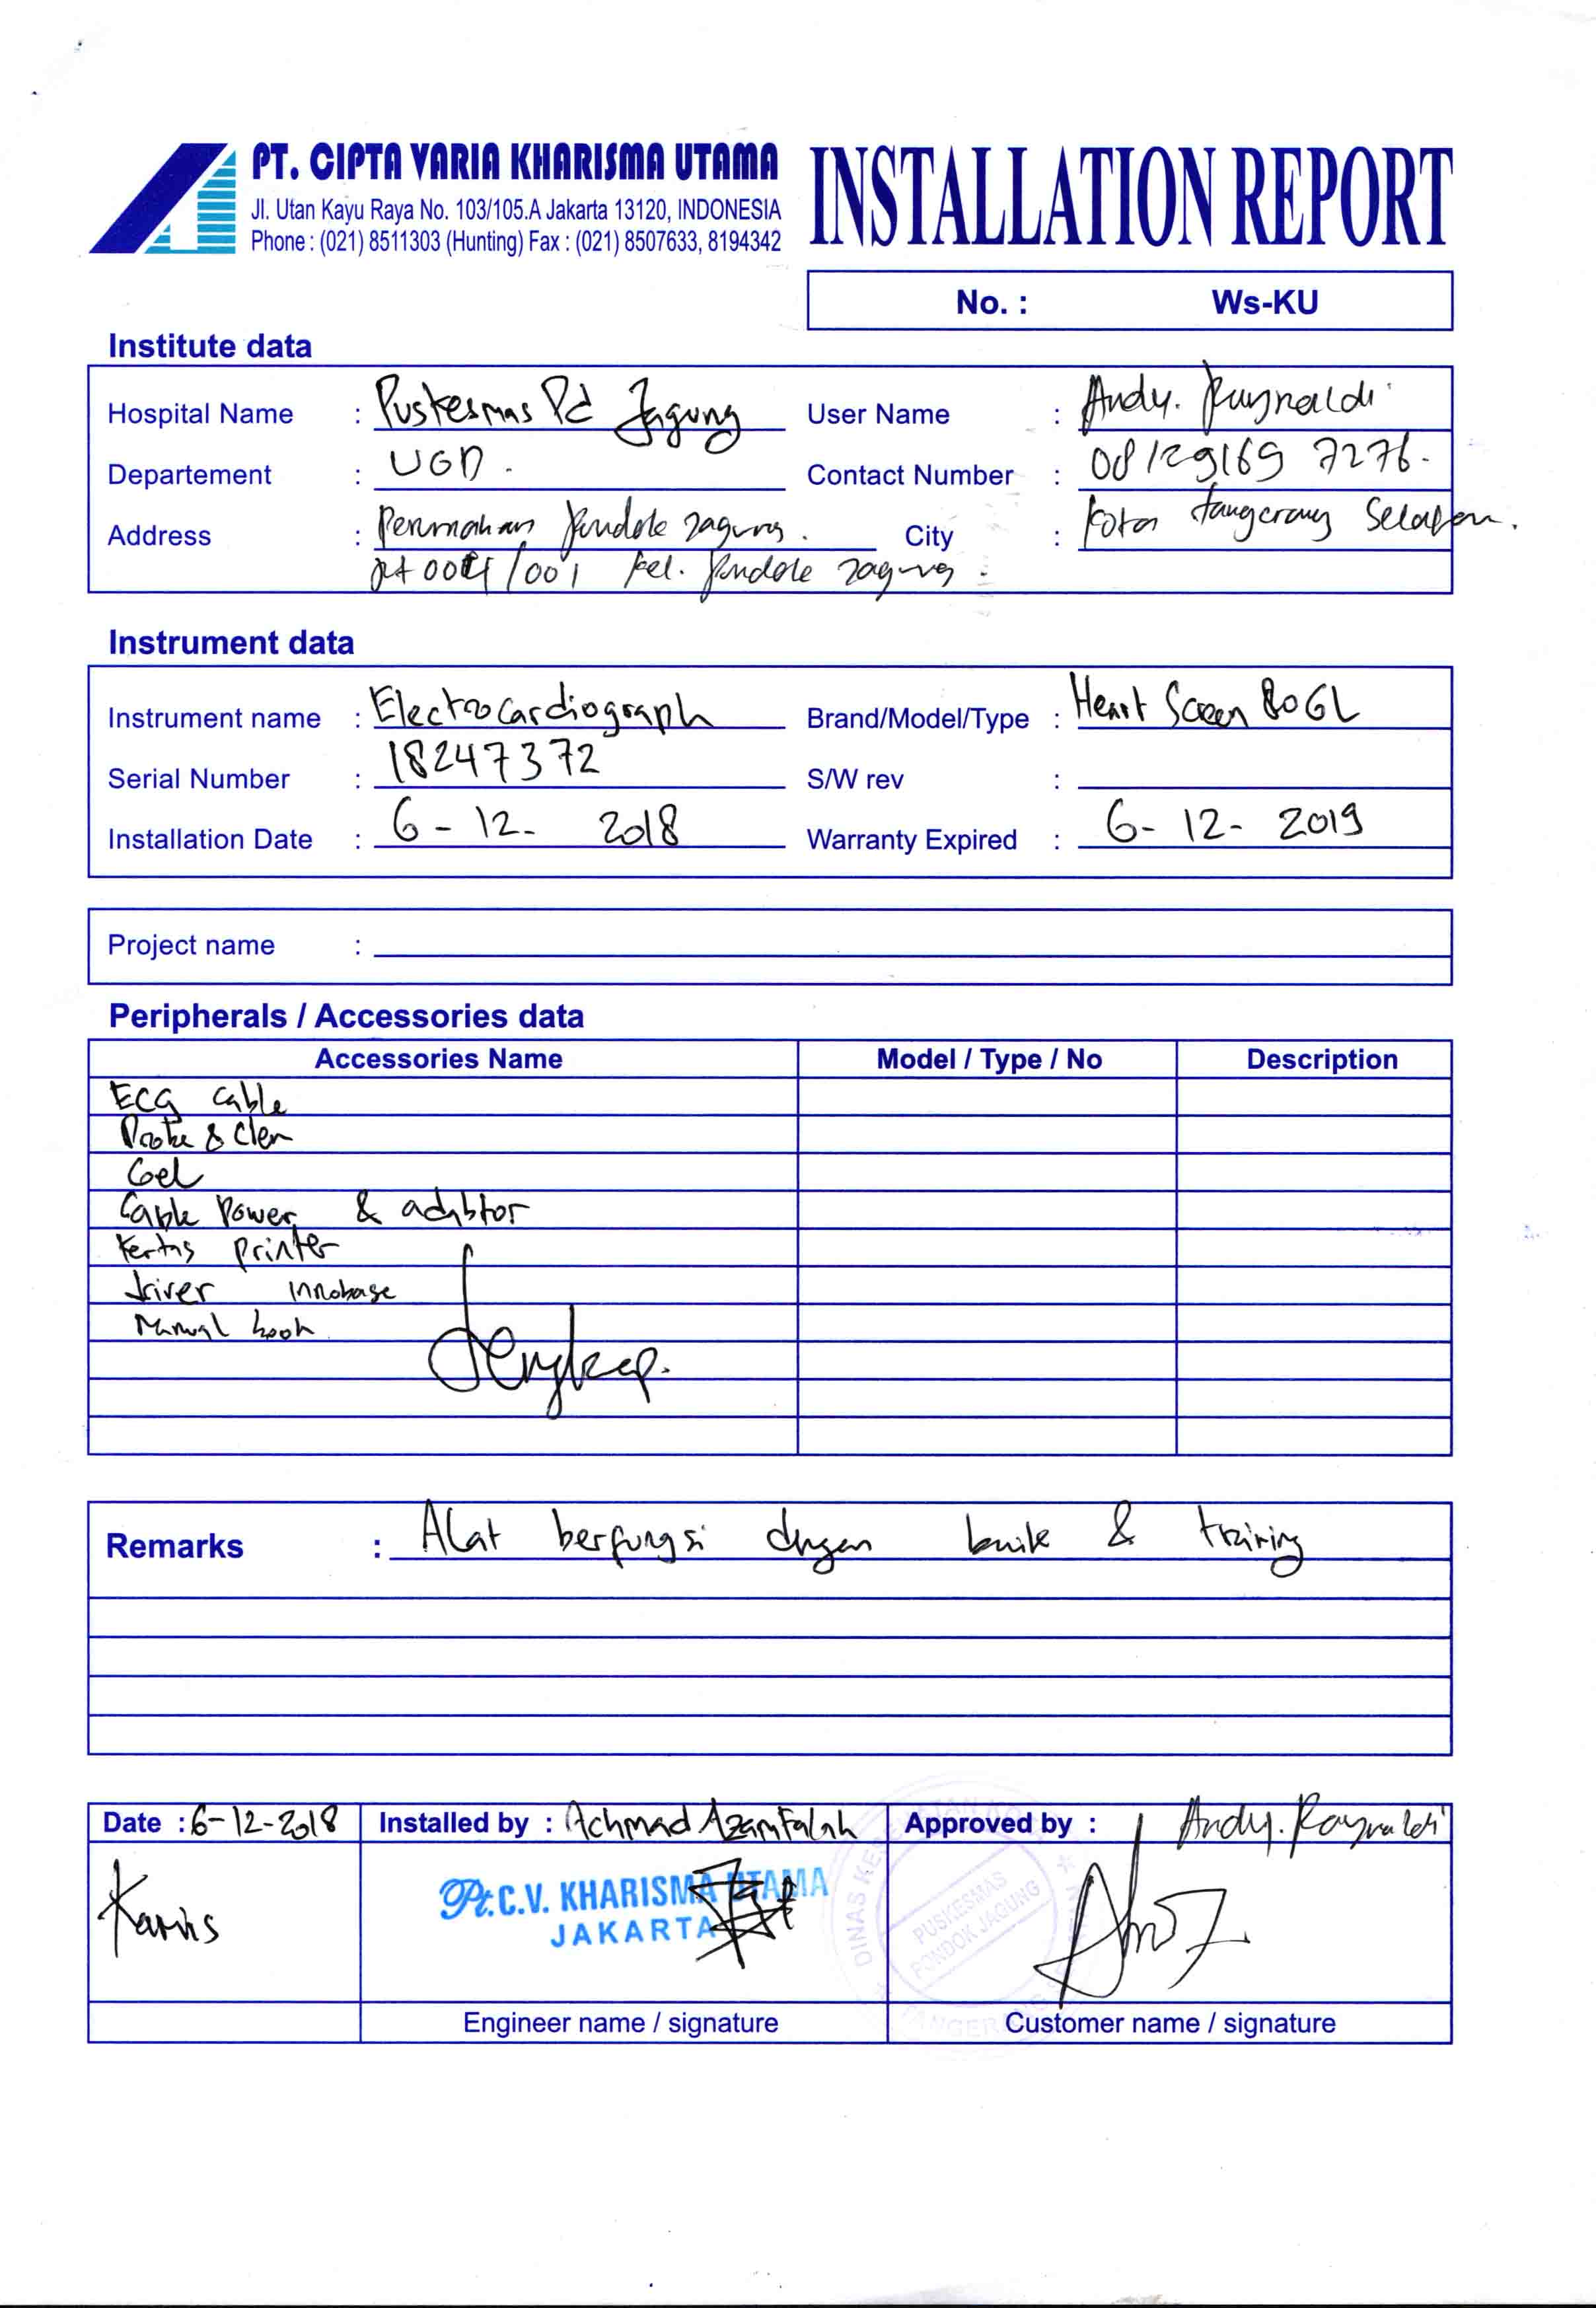 PT. CIPTA VARIA KHARISMA UTAMA
Jl. Utan Kayu Raya No. 103/105.A Jakarta 13120, INDONESIA
Phone : (021) 8511303 (Hunting) Fax : (021) 8507633, 8194342
INSTALLATION REPORT
No. : Ws-KU
Institute data
Hospital Name : Puskesmas Pd Jagung User Name : Andy. Raynaldi
Departement : UGD. Contact Number : 081291697276.
Address : Perumahan Pondok Jagung. City : Kota Tangerang Selatan.
rt 004/001 kel. Pondok Jagung.
Instrument data
Instrument name : Electrocardiograph Brand/Model/Type : Heart Screen 80GL
Serial Number : 18247372 S/W rev :
Installation Date : 6-12-2018 Warranty Expired : 6-12-2019
Project name :
Peripherals / Accessories data
Accessories Name Model / Type / No Description
ECG Cable
& Clem
Gel
Cable Power & adabtor
Kertas printer
driver innobase
Manual book
Lengkap.
Remarks : Alat berfungsi dngan baik & training
Date : 6-12-2018 Installed by : Achmad Azamfalah Approved by : Andy. Raynaldi
Kamis
Pt.C.V. KHARISMA UTAMA
JAKARTA
PUSKESMAS
PONDOK JAGUNG
Engineer name / signature Customer name / signature